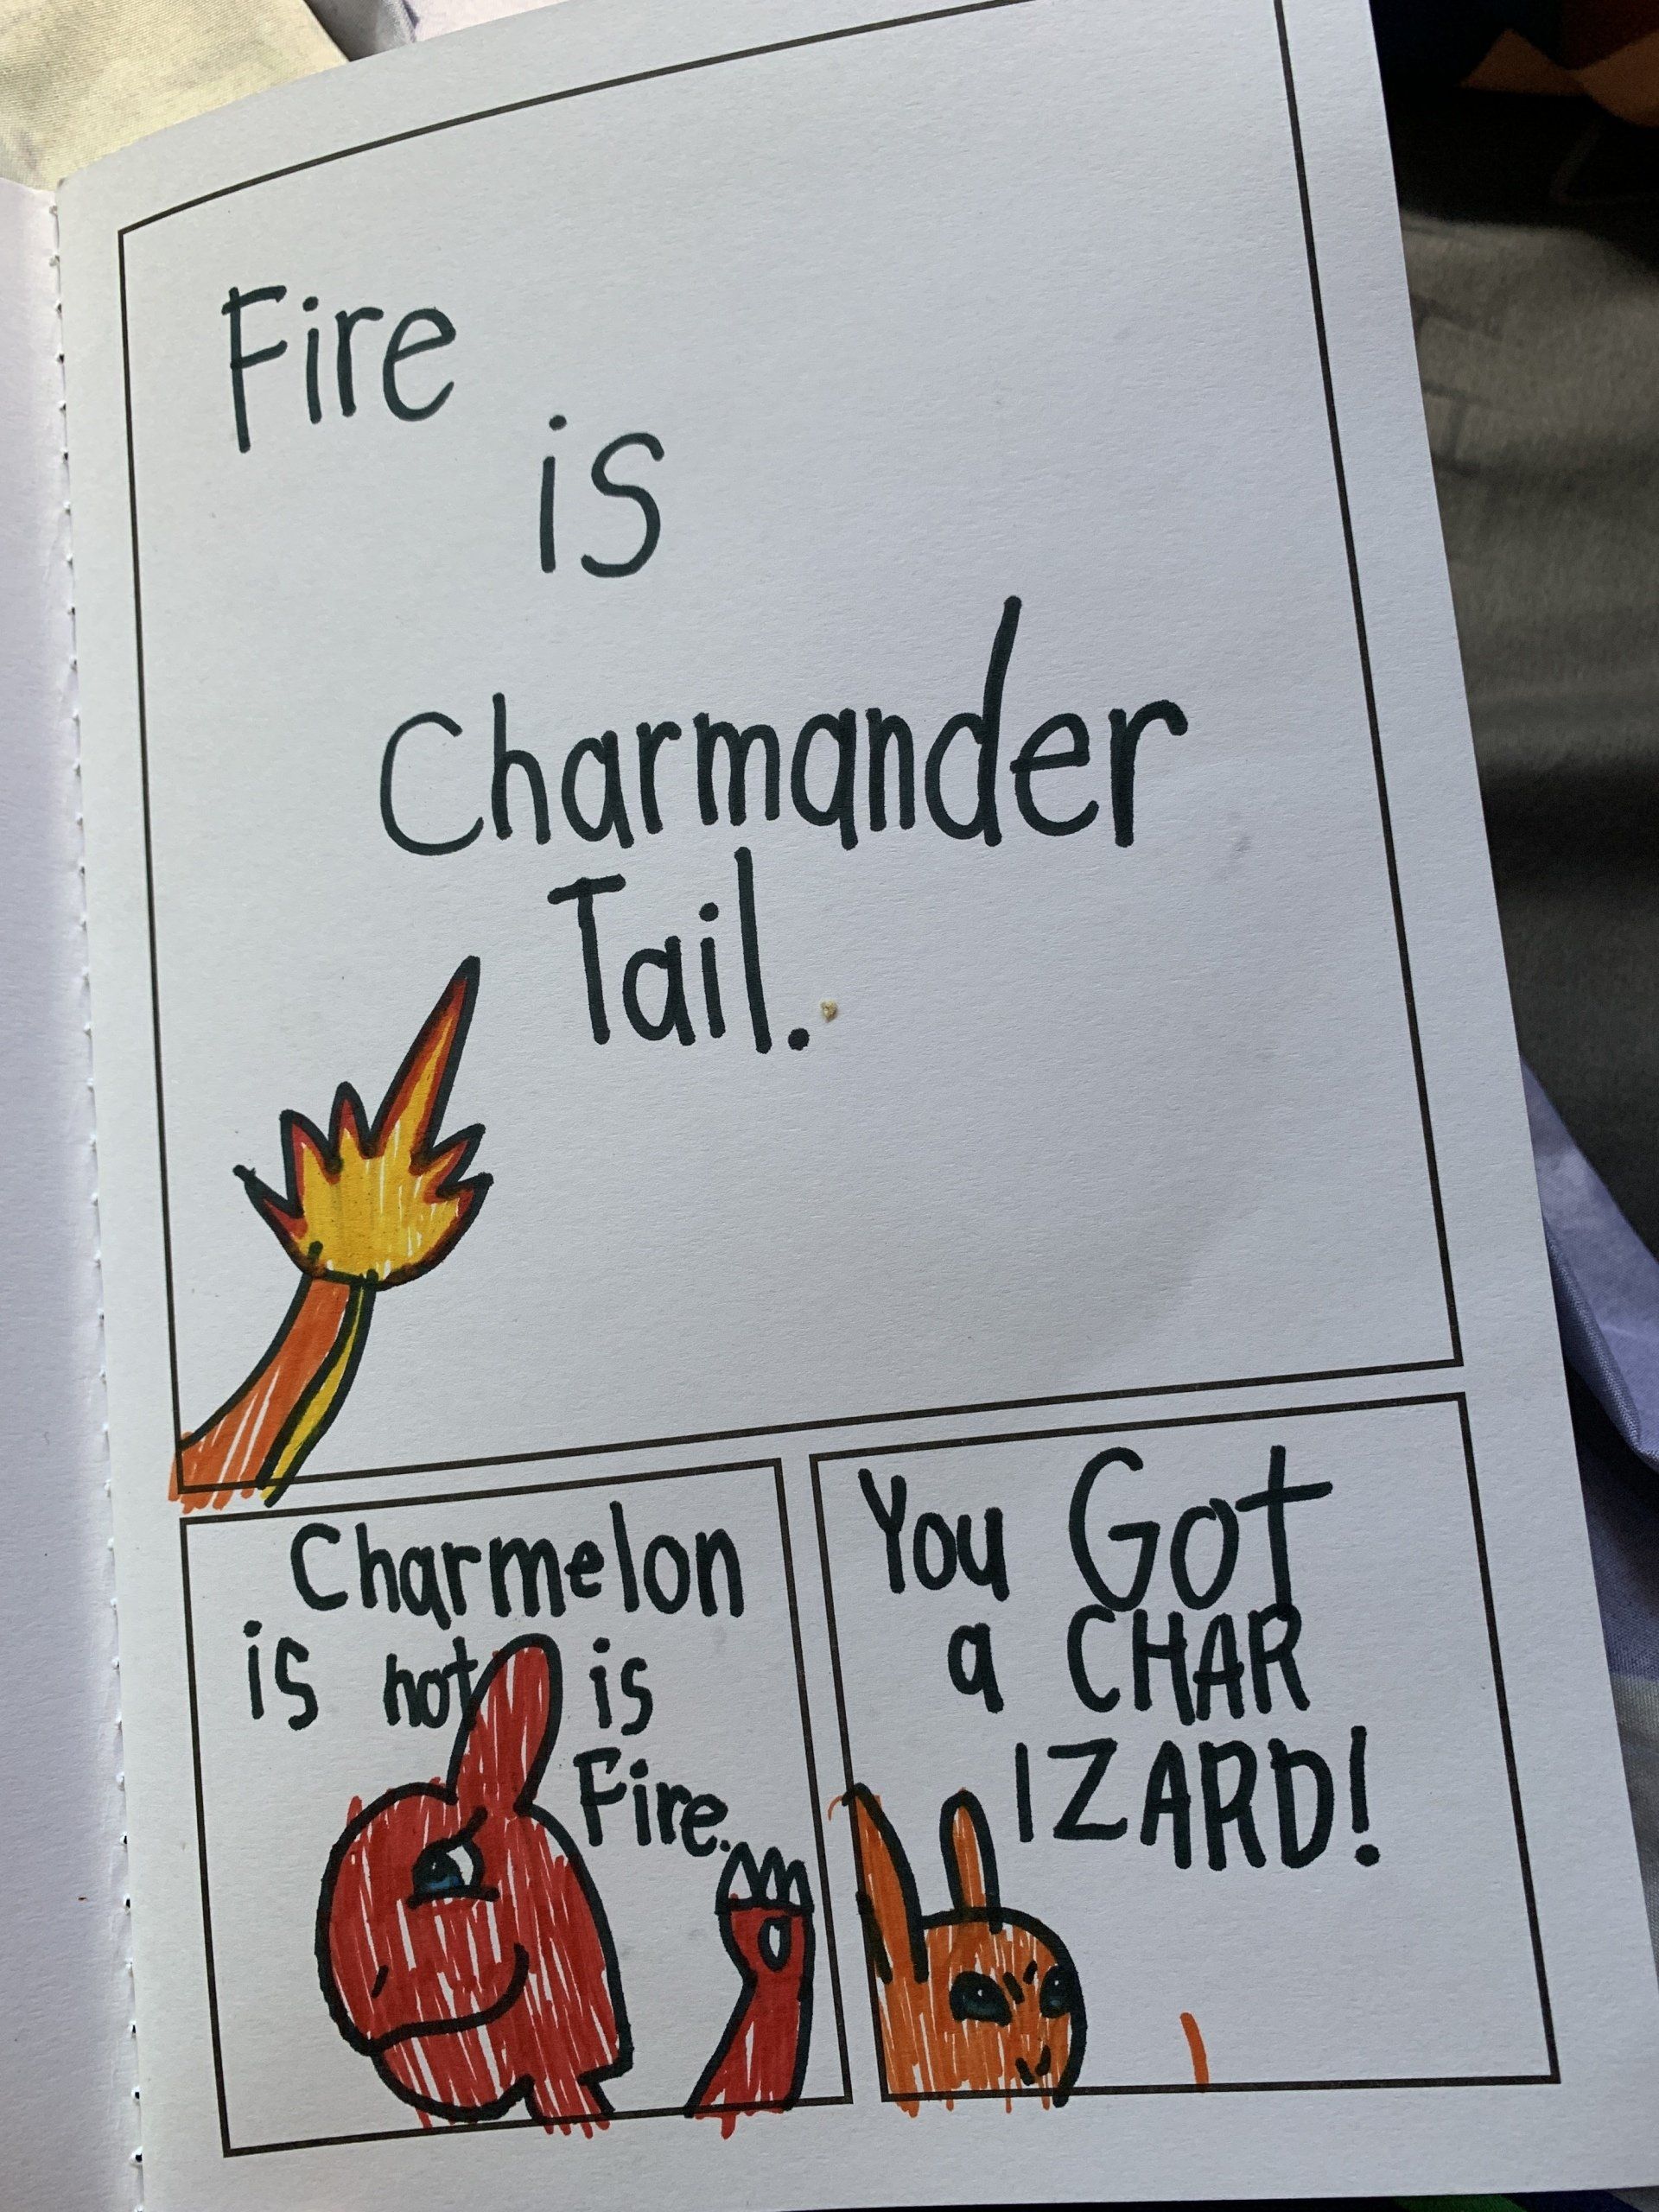 Fire
is
Charmander
Tail.
Charmelon
is not is
Fire.
You Got
a CHAR
IZARD!